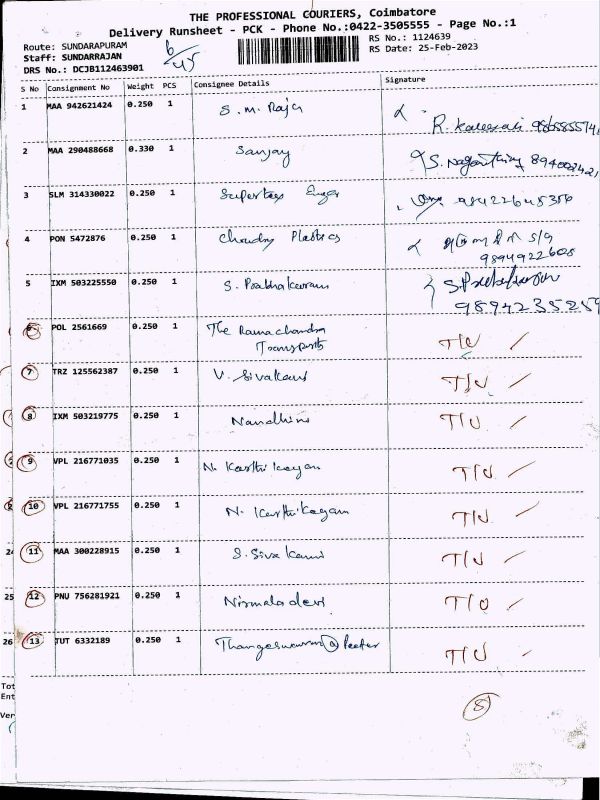 THE PROFESSIONAL COURIERS, Coimbatore
Delivery Runsheet - PCK - Phone No.:0422-3505555 - Page No.:1
Route: SUNDARAPURAM
Staff: SUNDARRAJAN
DRS No.: DCJB112463901
6/45
RS No.: 1124639
RS Date: 25-Feb-2023
S No Consignment No Weight PCS Consignee Details Signature
1 MAA 942621424 0.250 1 S. M. Raja R.
2 MAA 290488668 0.330 1 Sanjay S.
3 SLM 314330022 0.250 1
4 PON 5472876 0.250 1 Choudry Plastics S/o
9894922608
5 IXM 503225550 0.250 1 S. Prabhakaram
9894235259
6 POL 2561669 0.250 1 The Ramachandra
Transports T/U
7 TRZ 125562387 0.250 1 V. Sivakami T/U
8 IXM 503219775 0.250 1 Nandhini T/U
9 VPL 216771035 0.250 1 N. Karthikayan T/U
10 VPL 216771755 0.250 1 N. Karthikayan T/U
11 MAA 300228915 0.250 1 S. Sivakami T/U
12 PNU 756281921 0.250 1 Nirmaladevi T/U
13 TUT 6332189 0.250 1 T/U
8
25
26
Tot
Ent
Ver